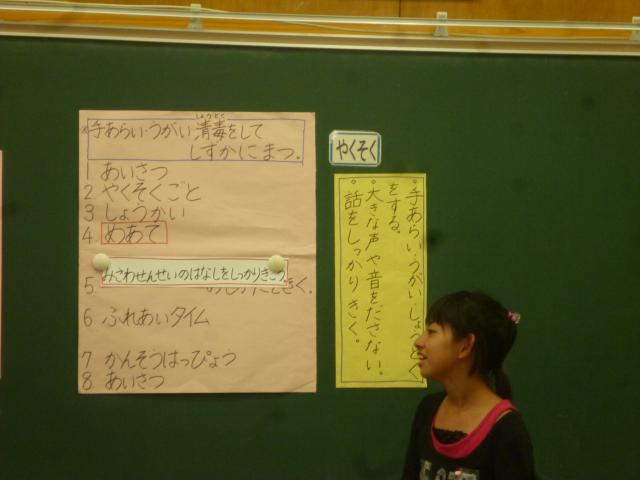 ※手あらい・うがい消毒をして
しょうどく
しずかにまつ。
1 あいさつ
2 やくそくごと
3 しょうかい
4 めあて
みさわせんせいのはなしをしっかりきこう。
5.
6 ふれあいタイム
7 かんそうはっぴょう
8 あいさつ
やくそく
。手あらい・うがい・しょうどく
をする。
。大きな声や音をださない。
。話をしっかりきく。